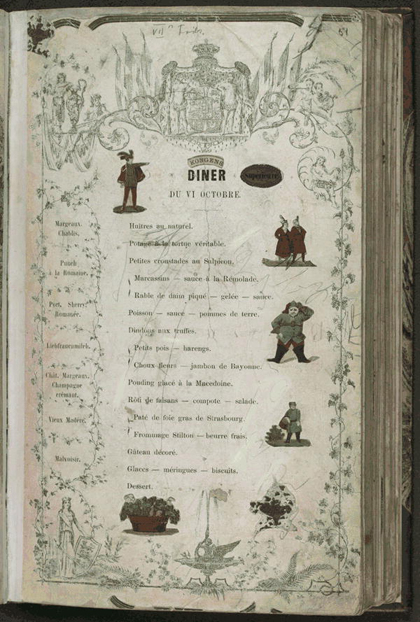 54
KONGENS
DINER
DU VI OCTOBRE
Huitres au naturel.
Potage à la tortue véritable.
Petites croustades au Salpicon.
Marcassins — sauce à la Rémolade.
Râble de daim piqué — gelée — sauce.
Poisson — sauce — pommes de terre.
Dindons aux truffes.
Petits pois — harengs.
Choux fleurs — jambon de Bayonne.
Pouding glacé à la Macedoine.
Rôti de faisans — compote — salade.
Pâté de foie gras de Strasbourg.
Fromage Stilton — beurre frais.
Gâteau décoré.
Glaces — méringues — biscuits.
Dessert.
Margaux.
Chablis.
Punch
à la Romaine.
Port, Sherry,
Romanée.
Liebfraumilch.
Chât. Margaux.
Champagne
crémant.
Vieux Madère.
Malvoisie.